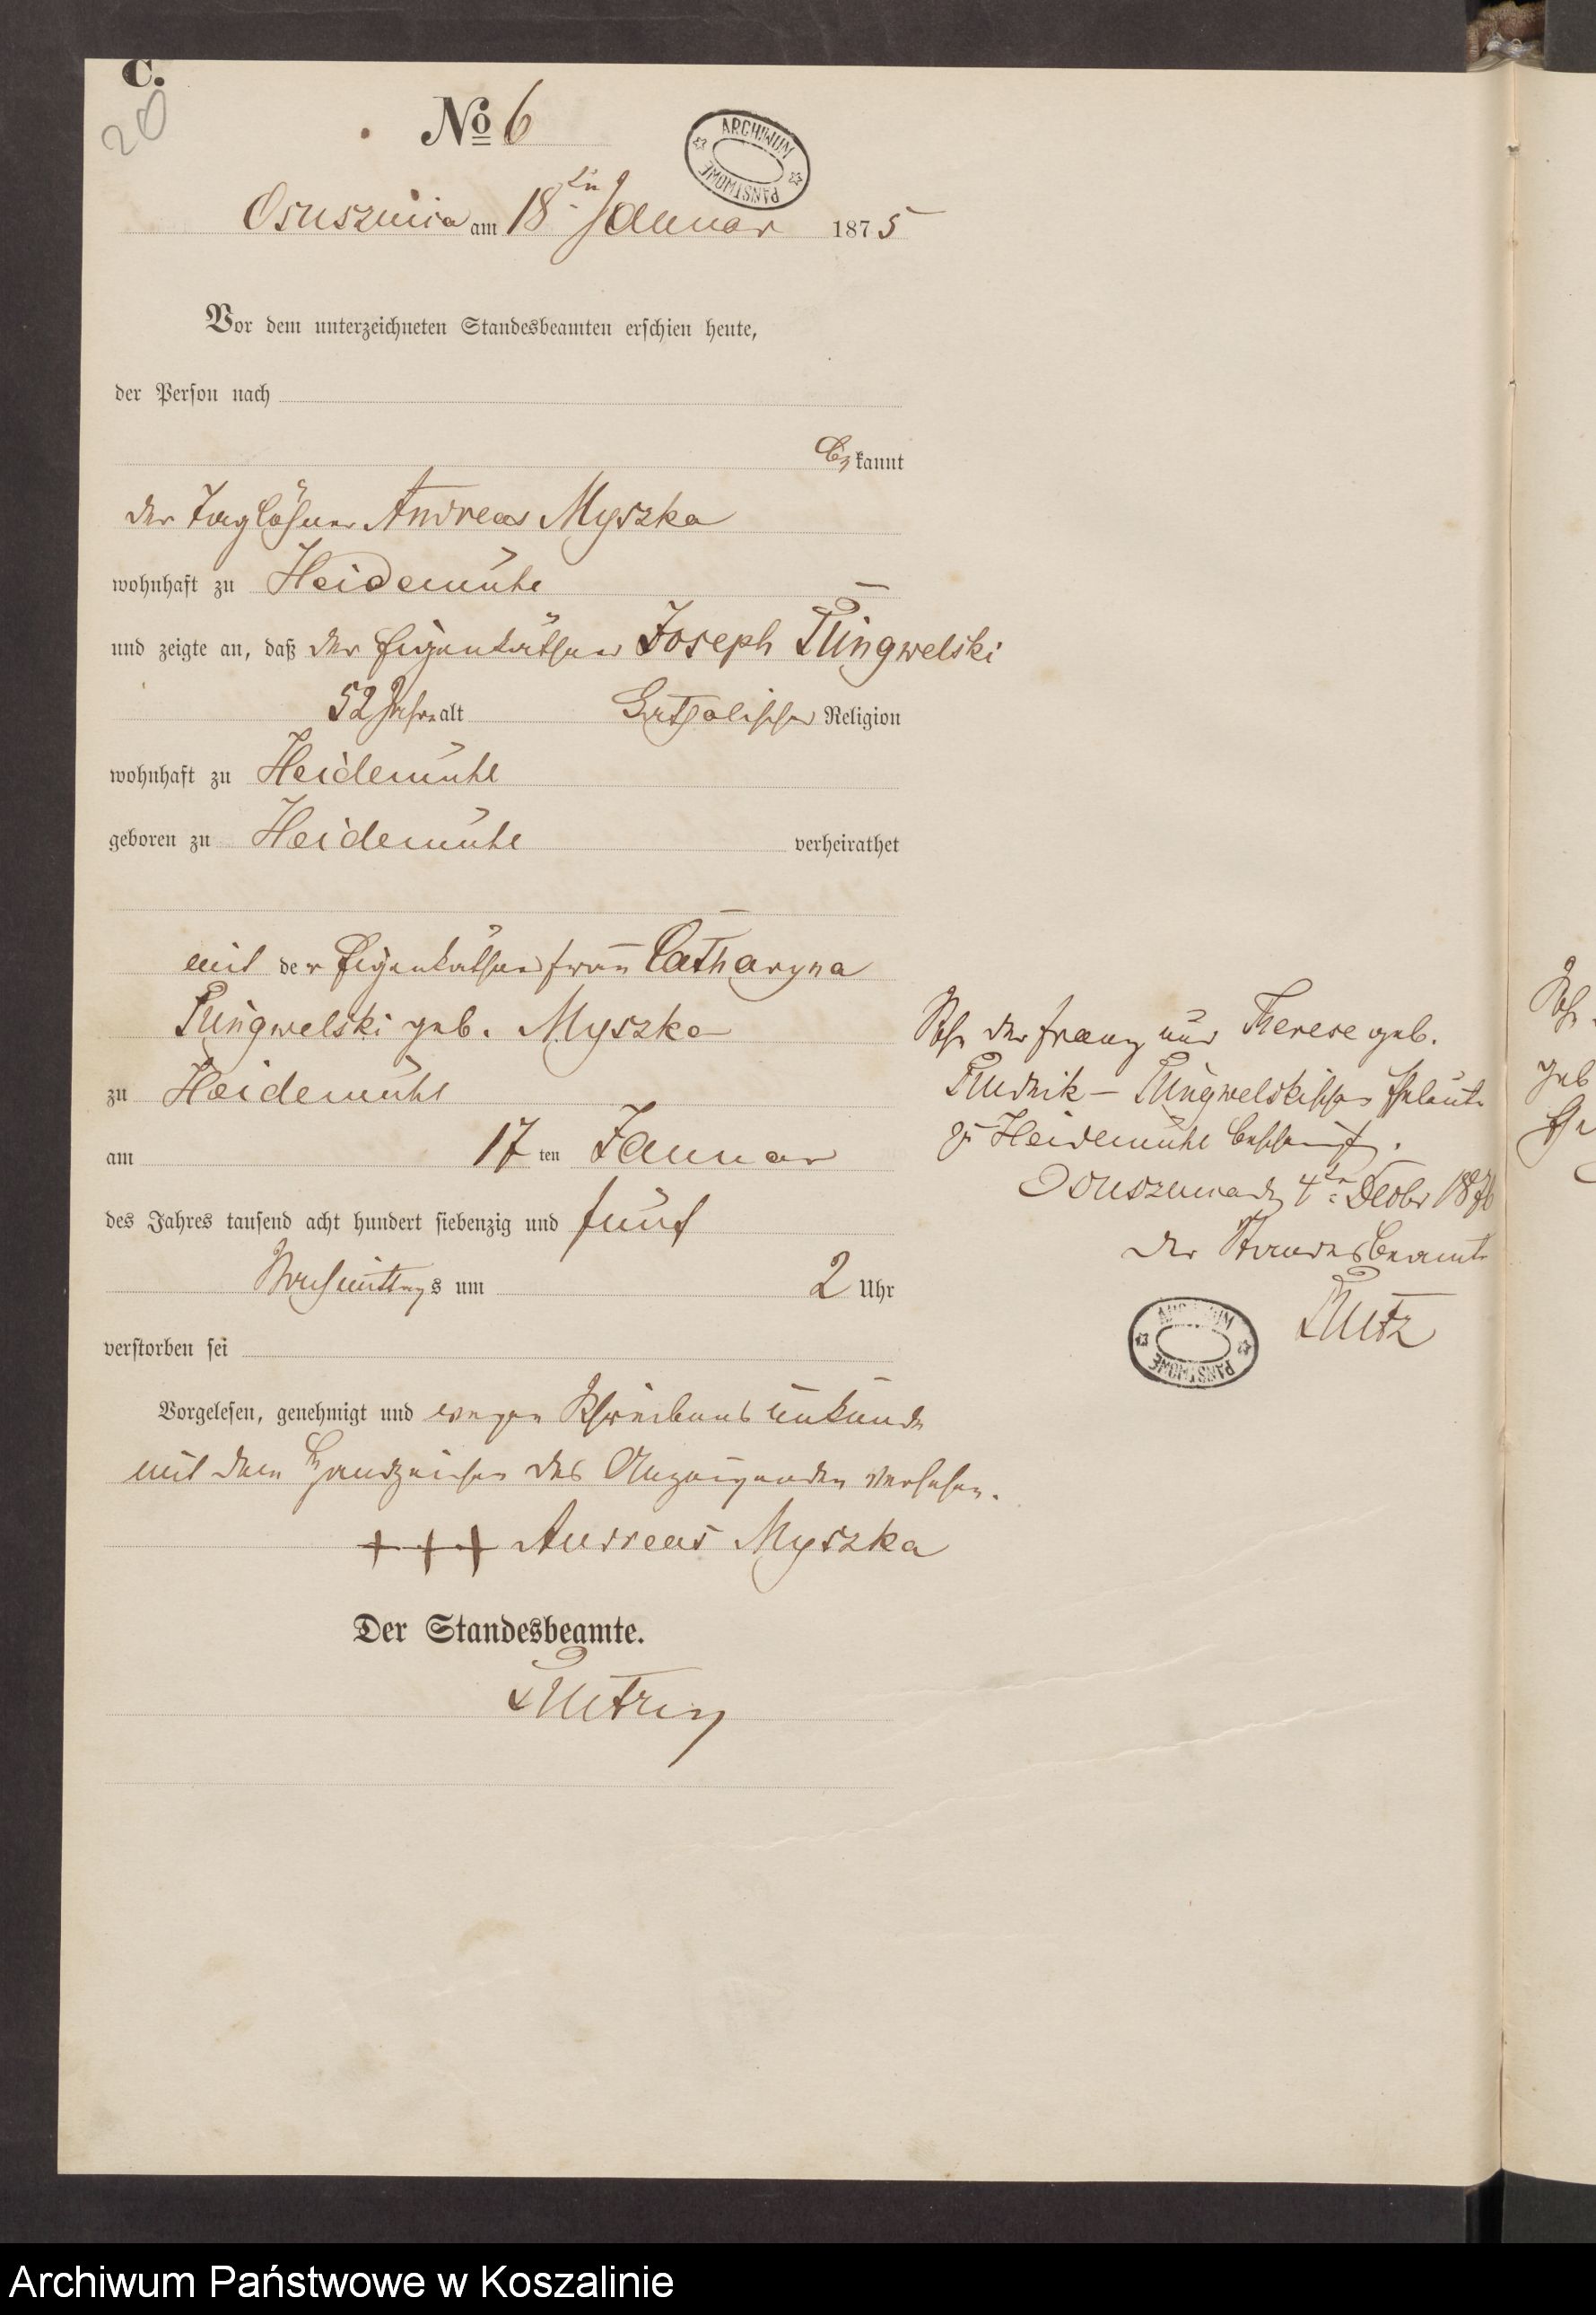 C.
20
No 6
ARCHIWUM PAŃSTWOWE
Osusznica am 18ten Januar 1875
Vor dem unterzeichneten Standesbeamten erschien heute,
der Person nach
be kannt
der Taglöhner Andreas Myszka
wohnhaft zu Heidemühl
und zeigte an, daß der Eigenkäthner Joseph Püngwelski
52 Jahre alt Katholischer Religion
wohnhaft zu Heidemühl
geboren zu Heidemühl verheirathet
mit der Eigenkäthnerfrau Catharyna
Püngwelski geb. Myszka
zu Heidemühl
am 17 ten Januar
des Jahres tausend acht hundert siebenzig und fünf
Nachmittags um 2 Uhr
verstorben sei
Vorgelesen, genehmigt und wegen Schreibensunkunde
mit dem Handzeichen des Anzeigenden versehen.
+++ Andreas Myszka
Der Standesbeamte.
Sohn der Franz und Therese geb.
Rudnik - Püngwelskischen Eheleute
zu Heidemühl bescheinigt.
Osusznica d 4ten Decbr 1876
Der Standesbeamte
ARCHIWUM PAŃSTWOWE
geb
Archiwum Państwowe w Koszalinie